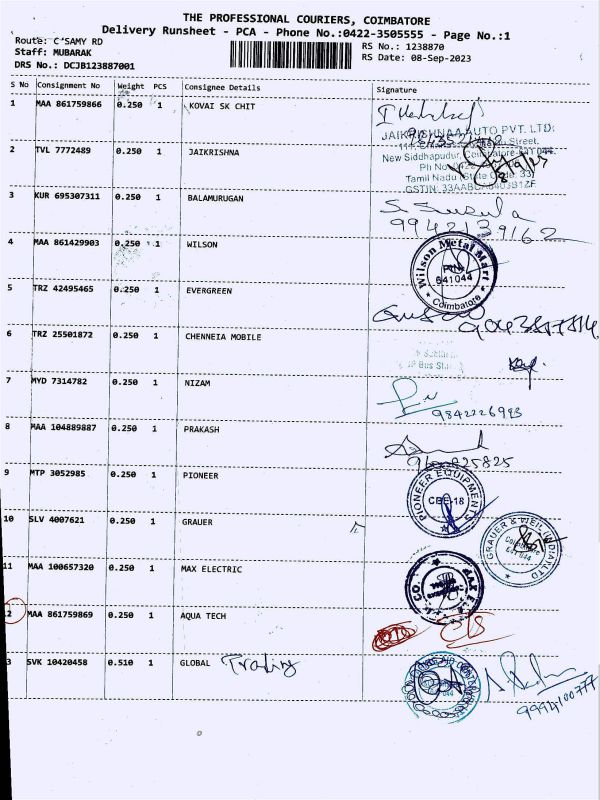 THE PROFESSIONAL COURIERS, COIMBATORE
Delivery Runsheet - PCA - Phone No.:0422-3505555 - Page No.:1
Route: C SAMY RD
Staff: MUBARAK
DRS No.: DCJB123887001
RS No.: 1238870
RS Date: 08-Sep-2023
S No Consignment No Weight PCS Consignee Details Signature
1 MAA 861759866 0.250 1 KOVAI SK CHIT
JAIKRISHNAA AUTO PVT. LTD.
Street,
New Siddhapudur, Coimbatore-641 044.
Tamil Nadu, State Code: 33
2 TVL 7772489 0.250 1 JAIKRISHNA
3 KUR 695307311 0.250 1 BALAMURUGAN
S. Susula
9942139162
4 MAA 861429903 0.250 1 WILSON
Wilson Metal Mart
PIN
641044
Coimbatore
5 TRZ 42495465 0.250 1 EVERGREEN
6 TRZ 25501872 0.250 1 CHENNEIA MOBILE
Bus Stand
7 MYD 7314782 0.250 1 NIZAM
9842226993
8 MAA 104889887 0.250 1 PRAKASH
9 MTP 3052985 0.250 1 PIONEER
PIONEER EQUIPMENTS
CBE-18
10 SLV 4007621 0.250 1 GRAUER
GRAUER & WEIL (INDIA) LTD
Coimbatore
641 044
11 MAA 100657320 0.250 1 MAX ELECTRIC
MAX ELE
CO.
12 MAA 861759869 0.250 1 AQUA TECH
13 SVK 10420458 0.510 1 GLOBAL Trading
9994100777